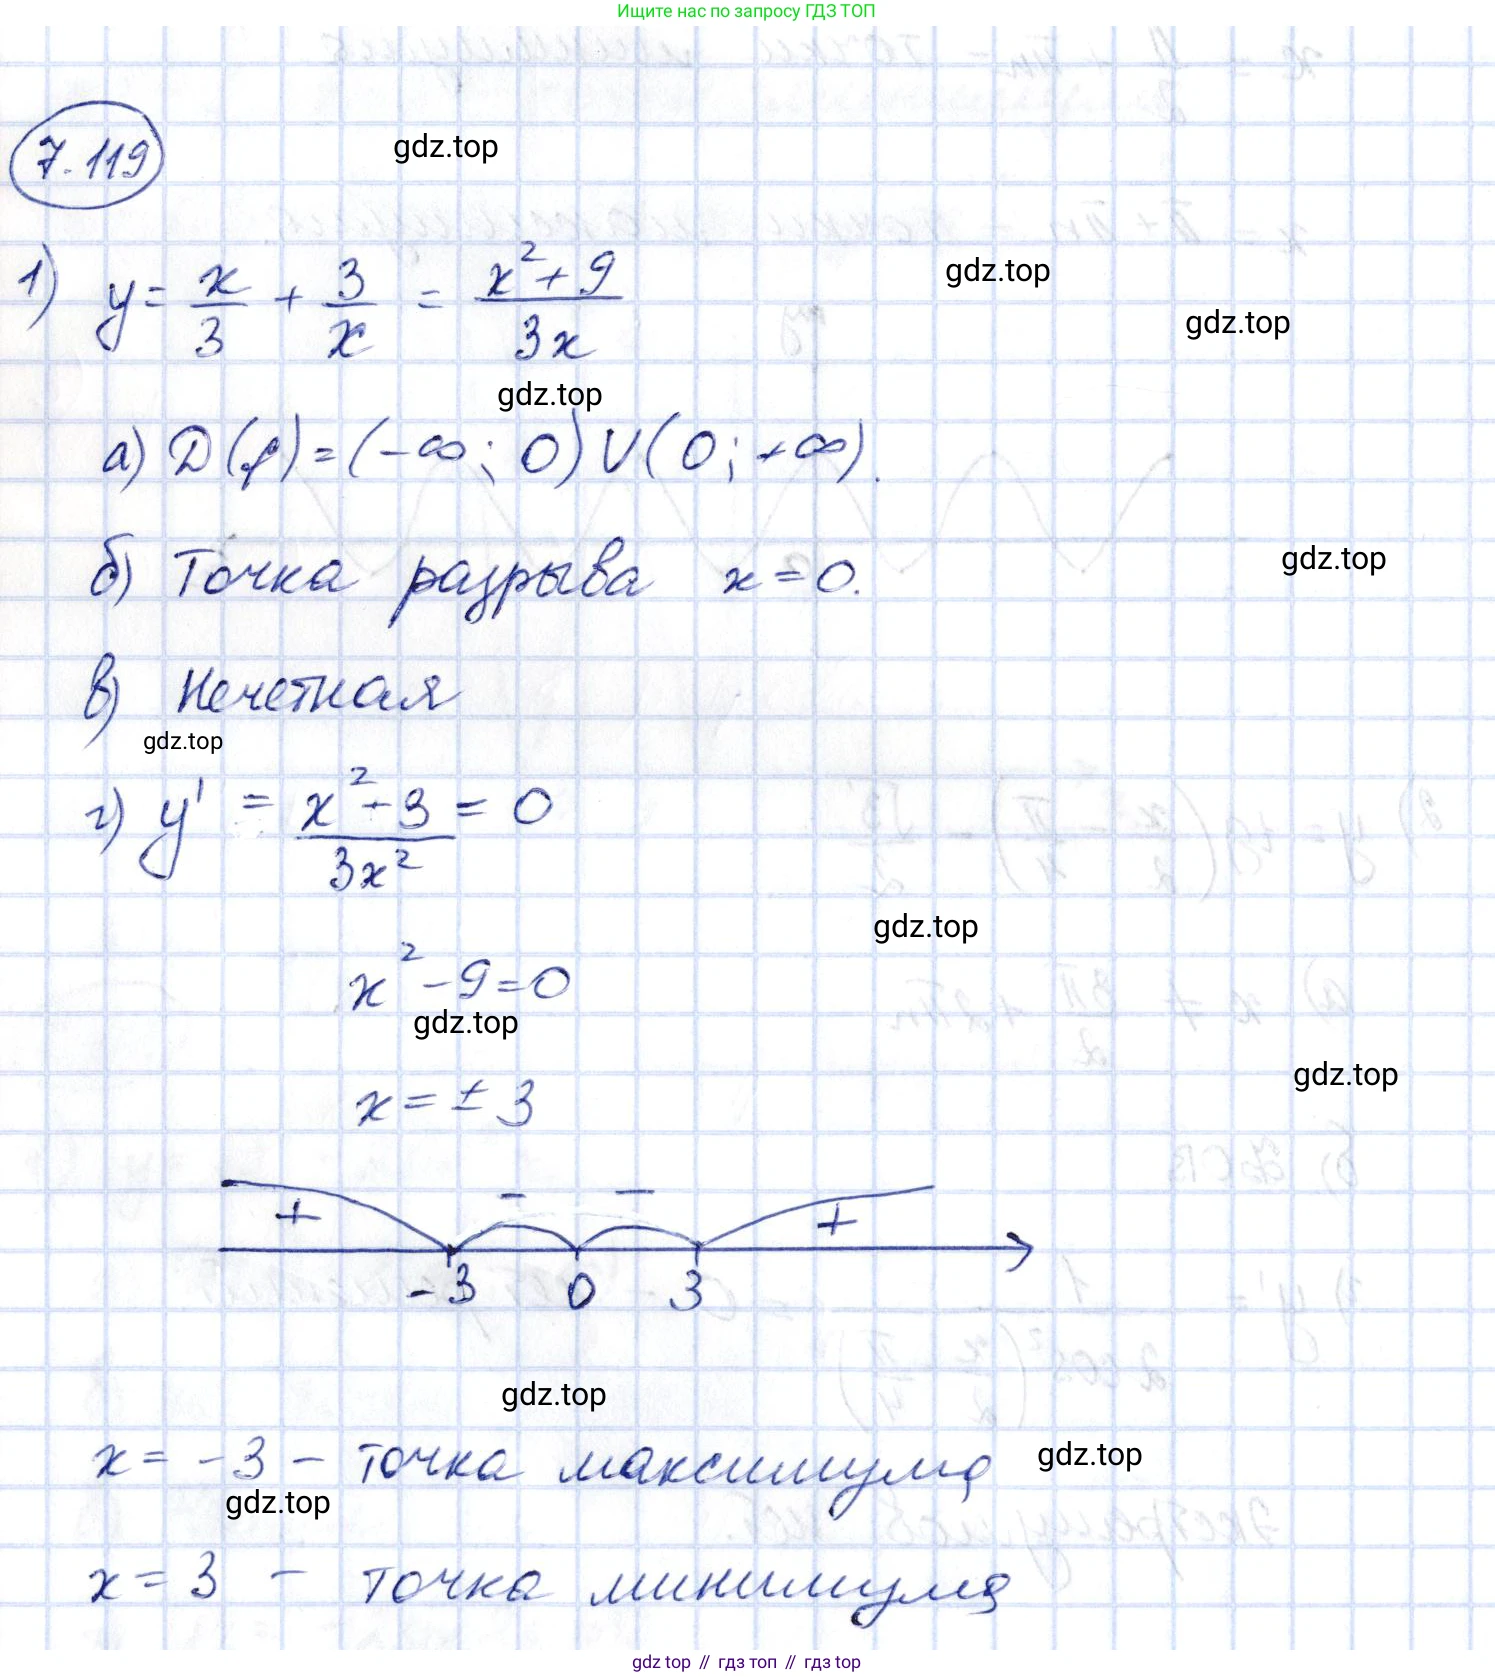 Ищите нас по запросу ГДЗ ТОП
7.119
gdz.top
1) y = x/3 + 3/x = (x² + 9)/(3x)
gdz.top
gdz.top
gdz.top
а) D(f) = (-∞; 0) ∪ (0; +∞).
б) Точка разрыва x = 0.
gdz.top
в) Нечетная
gdz.top
г) y' = (x² - 9)/(3x²) = 0
gdz.top
x² - 9 = 0
gdz.top
gdz.top
x = ± 3
+ - - +
-3 0 3
gdz.top
x = -3 - точка максимума
gdz.top
gdz.top
x = 3 - точка минимума
gdz top // гдз топ // гдз top